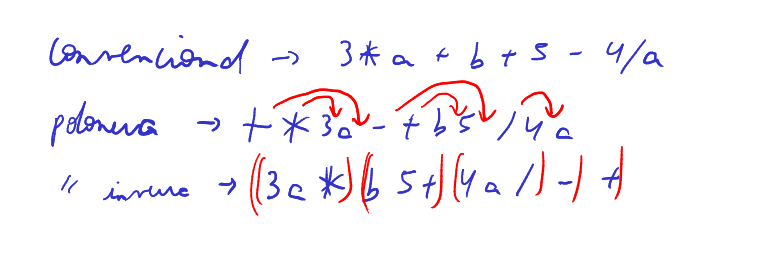 Convencional → 3 * a + b + 5 - 4/a
polonesa → + * 3 a - + b 5 / 4 a
" inversa → ((3 a *) ((b 5 +) (4 a /) -) +)